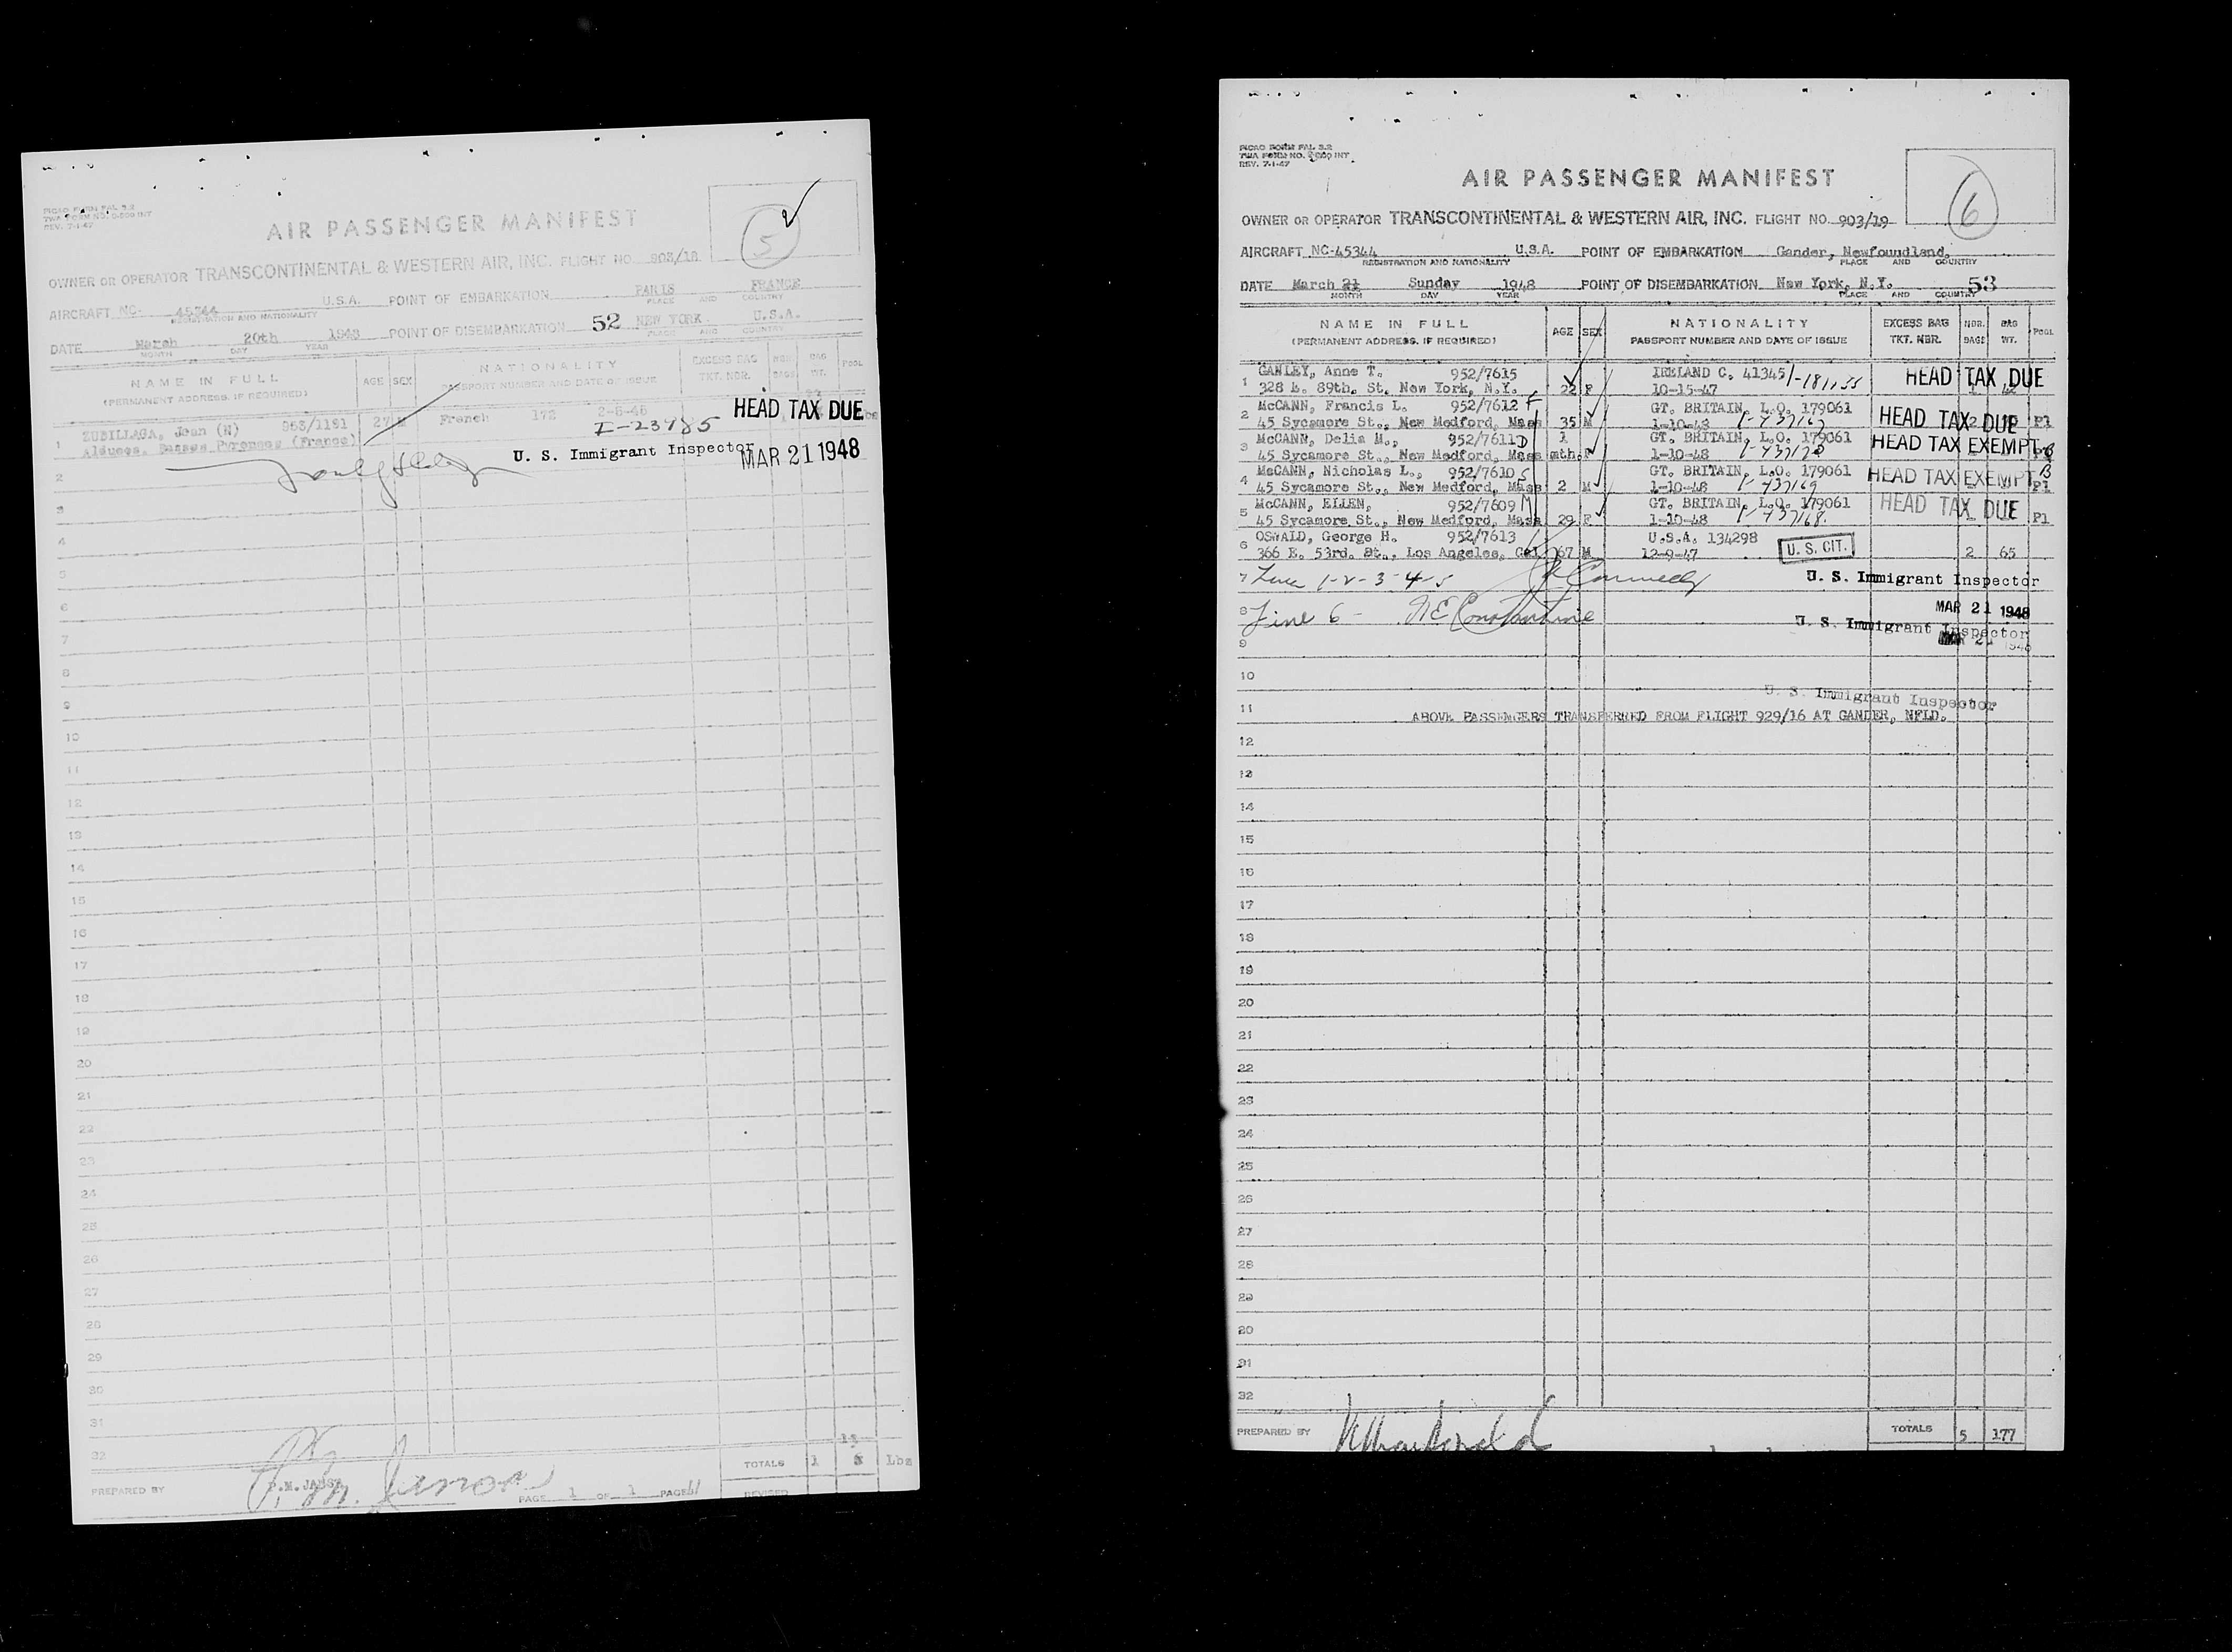 PICAO FORM PAL 3.2
TWA FORM NO. 0-800 INT
REV. 7-1-47
AIR PASSENGER MANIFEST
5
OWNER OR OPERATOR TRANSCONTINENTAL & WESTERN AIR, INC. FLIGHT NO. 903/18
AIRCRAFT NC- 45344 U.S.A. POINT OF EMBARKATION PARIS FRANCE
REGISTRATION AND NATIONALITY PLACE AND COUNTRY
DATE March 20th 1948 POINT OF DISEMBARKATION 52 NEW YORK U.S.A.
MONTH DAY YEAR PLACE AND COUNTRY
NAME IN FULL AGE SEX NATIONALITY EXCESS BAG NBR. BAG POOL
(PERMANENT ADDRESS, IF REQUIRED) PASSPORT NUMBER AND DATE OF ISSUE TKT. NBR. BAGS WT.
1 ZUBILLAGA, Jean (N) 953/1191 27 M French 172 HEAD TAX DUE
Aldudes. Basses Pyrenees (France) I-23485
U. S. Immigrant Inspector MAR 21 1948
2
3
4
5
6
7
8
9
10
11
12
13
14
15
16
17
18
19
20
21
22
23
24
25
26
27
28
29
30
31
32
TOTALS 1 Lbs
PREPARED BY PAGE 1 OF 1 PAGES
REVISED
PICAO FORM PAL 3.2
TWA FORM NO. 0-800 INT
REV. 7-1-47
AIR PASSENGER MANIFEST
6
OWNER OR OPERATOR TRANSCONTINENTAL & WESTERN AIR, INC. FLIGHT NO. 903/19
AIRCRAFT NC-45344 U.S.A. POINT OF EMBARKATION Gander, Newfoundland,
REGISTRATION AND NATIONALITY PLACE AND COUNTRY
DATE March 21 Sunday 1948 POINT OF DISEMBARKATION New York, N.Y. 53
MONTH DAY YEAR PLACE AND COUNTRY
NAME IN FULL AGE SEX NATIONALITY EXCESS BAG NBR. BAG POOL
(PERMANENT ADDRESS, IF REQUIRED) PASSPORT NUMBER AND DATE OF ISSUE TKT. NBR. BAGS WT.
1 GANLEY, Anne T. 952/7615 IRELAND C. 41345 HEAD TAX DUE
328 E. 89th. St. New York, N.Y. 22 F 10-15-47
2 McCANN, Francis L. 952/7612 F GT. BRITAIN, L.O. 179061 HEAD TAX DUE
45 Sycamore St., New Medford, Mass 35 M 1-10-48 Pl
3 McCANN, Delia M., 952/7611 D 1 GT. BRITAIN, L.O. 179061 HEAD TAX EXEMPT
45 Sycamore St., New Medford, Mass mth. F 1-10-48
4 McCANN, Nicholas L., 952/7610 S GT. BRITAIN, L.O. 179061 HEAD TAX EXEMPT B
45 Sycamore St., New Medford, Mass 2 M 1-10-48 Pl
5 McCANN, ELLEN, 952/7609 M GT. BRITAIN, L.O. 179061 HEAD TAX DUE
45 Sycamore St., New Medford, Mass 29 F 1-10-48 Pl
6 OSWALD, George H. 952/7613 U.S.A. 134298 U. S. CIT.
366 E. 53rd. St., Los Angeles, Cal. 67 M 12-9-47 2 65
7 Line 1-2-3-4-5 U. S. Immigrant Inspector
MAR 21 1948
8 Line 6 - N E Constantine U. S. Immigrant Inspector
9
10
U. S. Immigrant Inspector
11 ABOVE PASSENGERS TRANSFERRED FROM FLIGHT 929/16 AT GANDER, NFLD.
12
13
14
15
16
17
18
19
20
21
22
23
24
25
26
27
28
29
30
31
32
PREPARED BY TOTALS 5 177